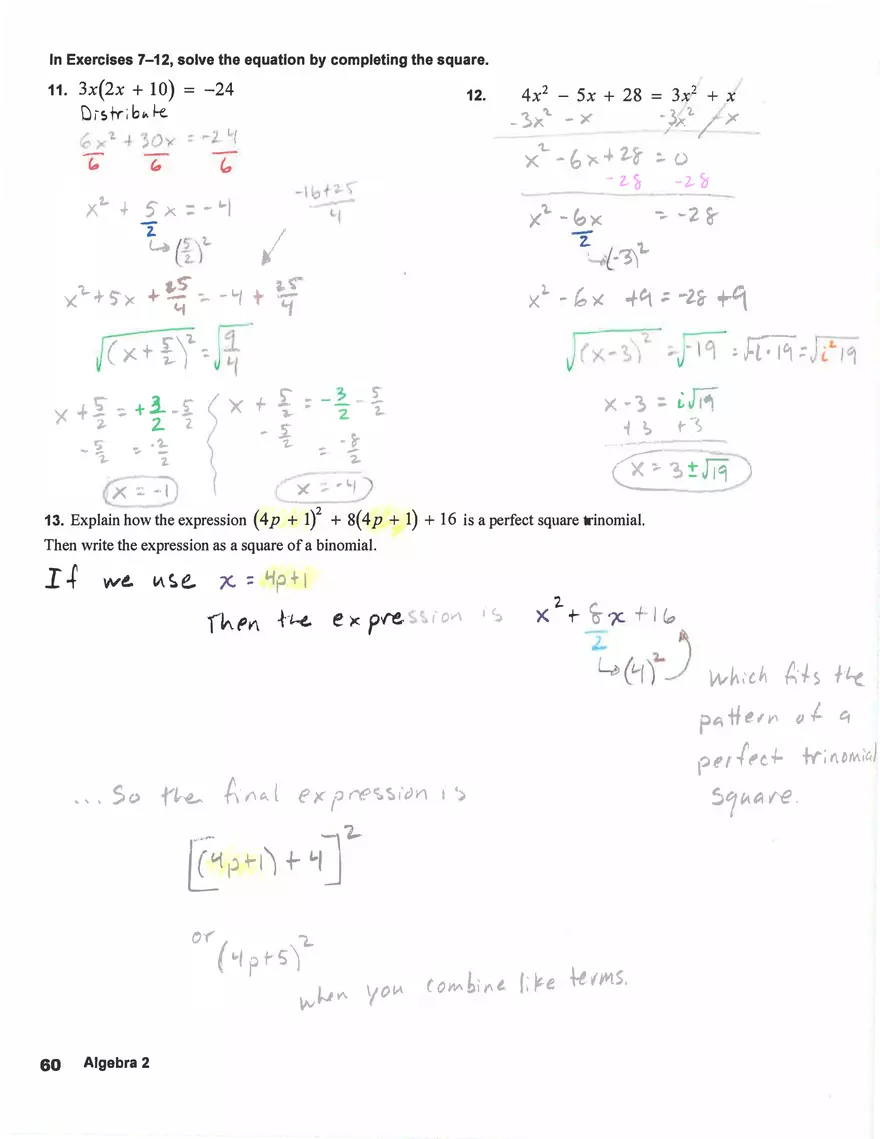 In Exercises 7–12, solve the equation by completing the square.
11. 3x(2x + 10) = −24
Distribute
6x² + 30x = -24
6 6 6
x² + 5x = -4
2
↳ (5/2)²
-16+25
4
x² + 5x + 25/4 = -4 + 25/4
√(x + 5/2)² = √9/4
x + 5/2 = +3/2 - 5/2
- 5/2 = -2/2
x = -1
x + 5/2 = -3/2 - 5/2
- 5/2 = -8/2
x = -4
12. 4x² − 5x + 28 = 3x² + x
-3x² - x -3x² - x
x² - 6x + 28 = 0
-28 -28
x² - 6x = -28
2
↳ (-3)²
x² - 6x +9 = -28 +9
√(x-3)² = √-19 = √-1·19 = √i²19
x - 3 = i√19
+3 +3
x = 3 ± √19
13. Explain how the expression (4p + 1)² + 8(4p + 1) + 16 is a perfect square trinomial.
Then write the expression as a square of a binomial.
If we use x = 4p+1
Then the expression is x² + 8x + 16
2
↳ (4)²
which fits the
pattern of a
perfect trinomial
square.
... So the final expression is
[(4p+1) + 4]²
or (4p+5)²
when you combine like terms.
60 Algebra 2